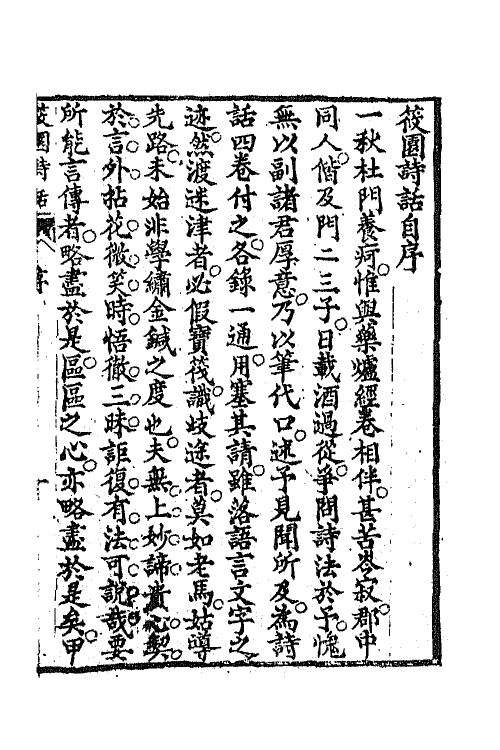 筱園詩話自序
一秋杜門養疴惟與藥爐經卷相伴甚苦岑寂郡中
同人偕及門二三子日載酒過從爭問詩法於予愧
無以副諸君厚意乃以筆代口述予見聞所及為詩
話四卷付之各錄一通用塞其請雖落語言文字之
迹然渡迷津者必假寶筏識歧途者莫如老馬姑導
先路未始非學繡金鍼之度也夫無上妙諦貴乎契
於言外拈花微笑時悟徹三昧詎復有法可說哉要
所能言傳者略盡於是區區之心亦略盡於是矣甲
筱園詩話